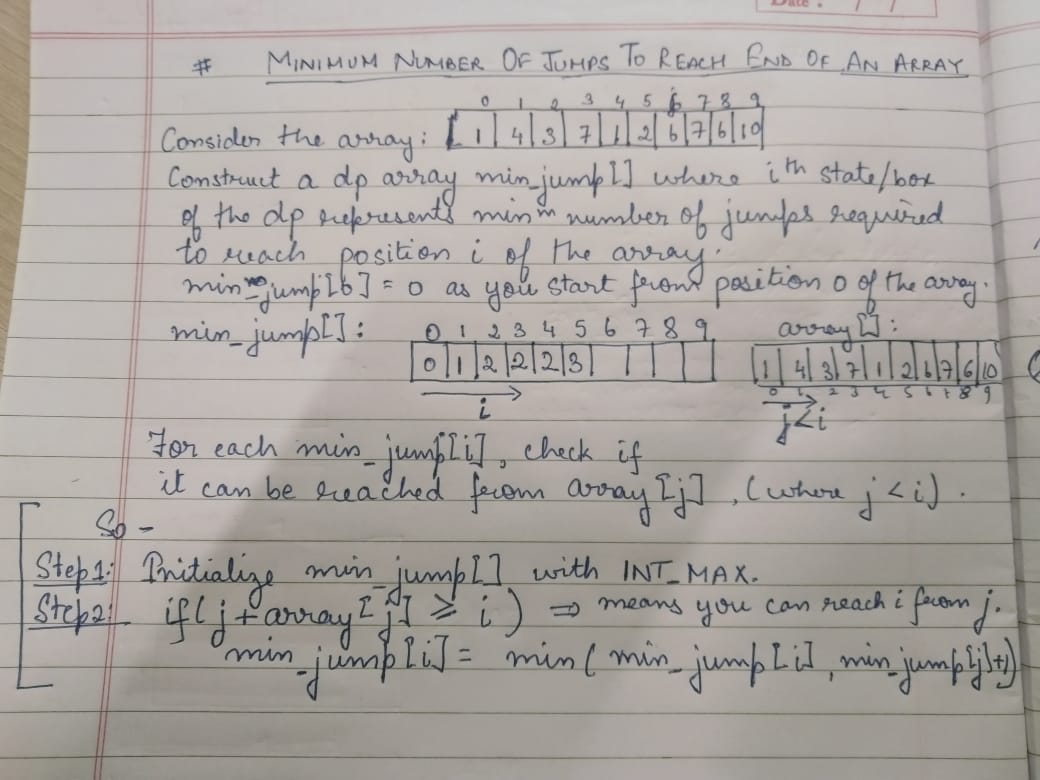 Date :
# MINIMUM NUMBER OF JUMPS TO REACH END OF AN ARRAY
0 1 2 3 4 5 6 7 8 9
Consider the array: [ 1 | 4 | 3 | 7 | 1 | 2 | 6 | 7 | 6 | 10
Construct a dp array min_jump[] where ith state/box
of the dp represents minm number of jumps required
to reach position i of the array.
min_jump[0] = 0 as you start from position 0 of the array.
min_jump[]: 0 1 2 3 4 5 6 7 8 9 array[]:
0 | 1 | 2 | 2 | 2 | 3 | 1 | 4 | 3 | 7 | 1 | 2 | 6 | 7 | 6 | 10
0 1 2 3 4 5 6 7 8 9
i j<i
For each min_jump[i], check if
it can be reached from array[j], (where j < i).
So -
Step1: Initialize min_jump[] with INT_MAX.
Step2: if(j + array[j] ≥ i) ⇒ means you can reach i from j.
min_jump[i] = min( min_jump[i], min_jump[j]+1)